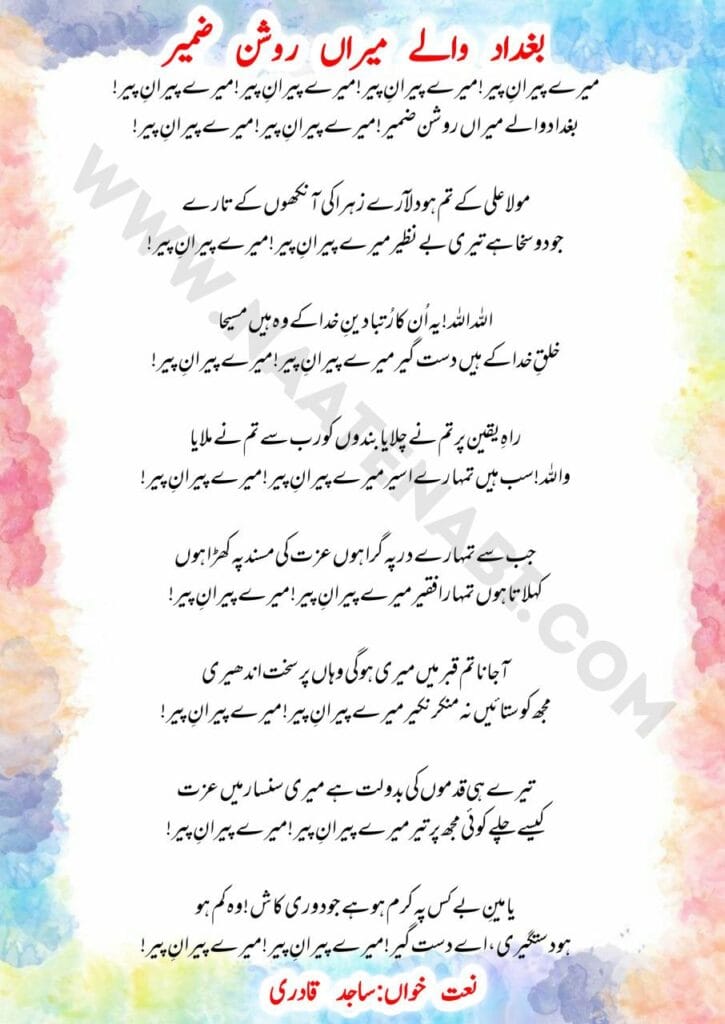 بغداد والے میراں روشن ضمیر
میرے پیرانِ پیر!میرے پیرانِ پیر!میرے پیرانِ پیر!میرے پیرانِ پیر!
بغداد والے میراں روشن ضمیر!میرے پیرانِ پیر!میرے پیرانِ پیر!
مولا علی کے تم ہو دلآرے زہرا کی آنکھوں کے تارے
جود و سخا ہے تیری بے نظیر میرے پیرانِ پیر!میرے پیرانِ پیر!
اللہ اللہ!یہ اُن کا رُتبا دینِ خدا کے وہ ہیں مسیحا
خلقِ خدا کے ہیں دست گیر میرے پیرانِ پیر!میرے پیرانِ پیر!
راہِ یقین پر تم نے چلایا بندوں کو رب سے تم نے ملایا
واللہ!سب ہیں تمہارے اسیر میرے پیرانِ پیر!میرے پیرانِ پیر!
جب سے تمہارے در پہ گرا ہوں عزت کی مسند پہ کھڑا ہوں
کہلاتا ہوں تمہارا فقیر میرے پیرانِ پیر!میرے پیرانِ پیر!
آ جانا تم قبر میں میری ہوگی وہاں پر سخت اندھیری
مجھ کو ستائیں نہ منکر نکیر میرے پیرانِ پیر!میرے پیرانِ پیر!
تیرے ہی قدموں کی بدولت ہے میری سنسار میں عزت
کیسے چلے کوئی مجھ پر تیر میرے پیرانِ پیر!میرے پیرانِ پیر!
یامینِ بے کس پہ کرم ہو ہے جو دوری کاش!وہ کم ہو
ہو دستگیری،اے دست گیر!میرے پیرانِ پیر!میرے پیرانِ پیر!
نعت خواں:ساجد قادری
WWW.NAATENABI.COM